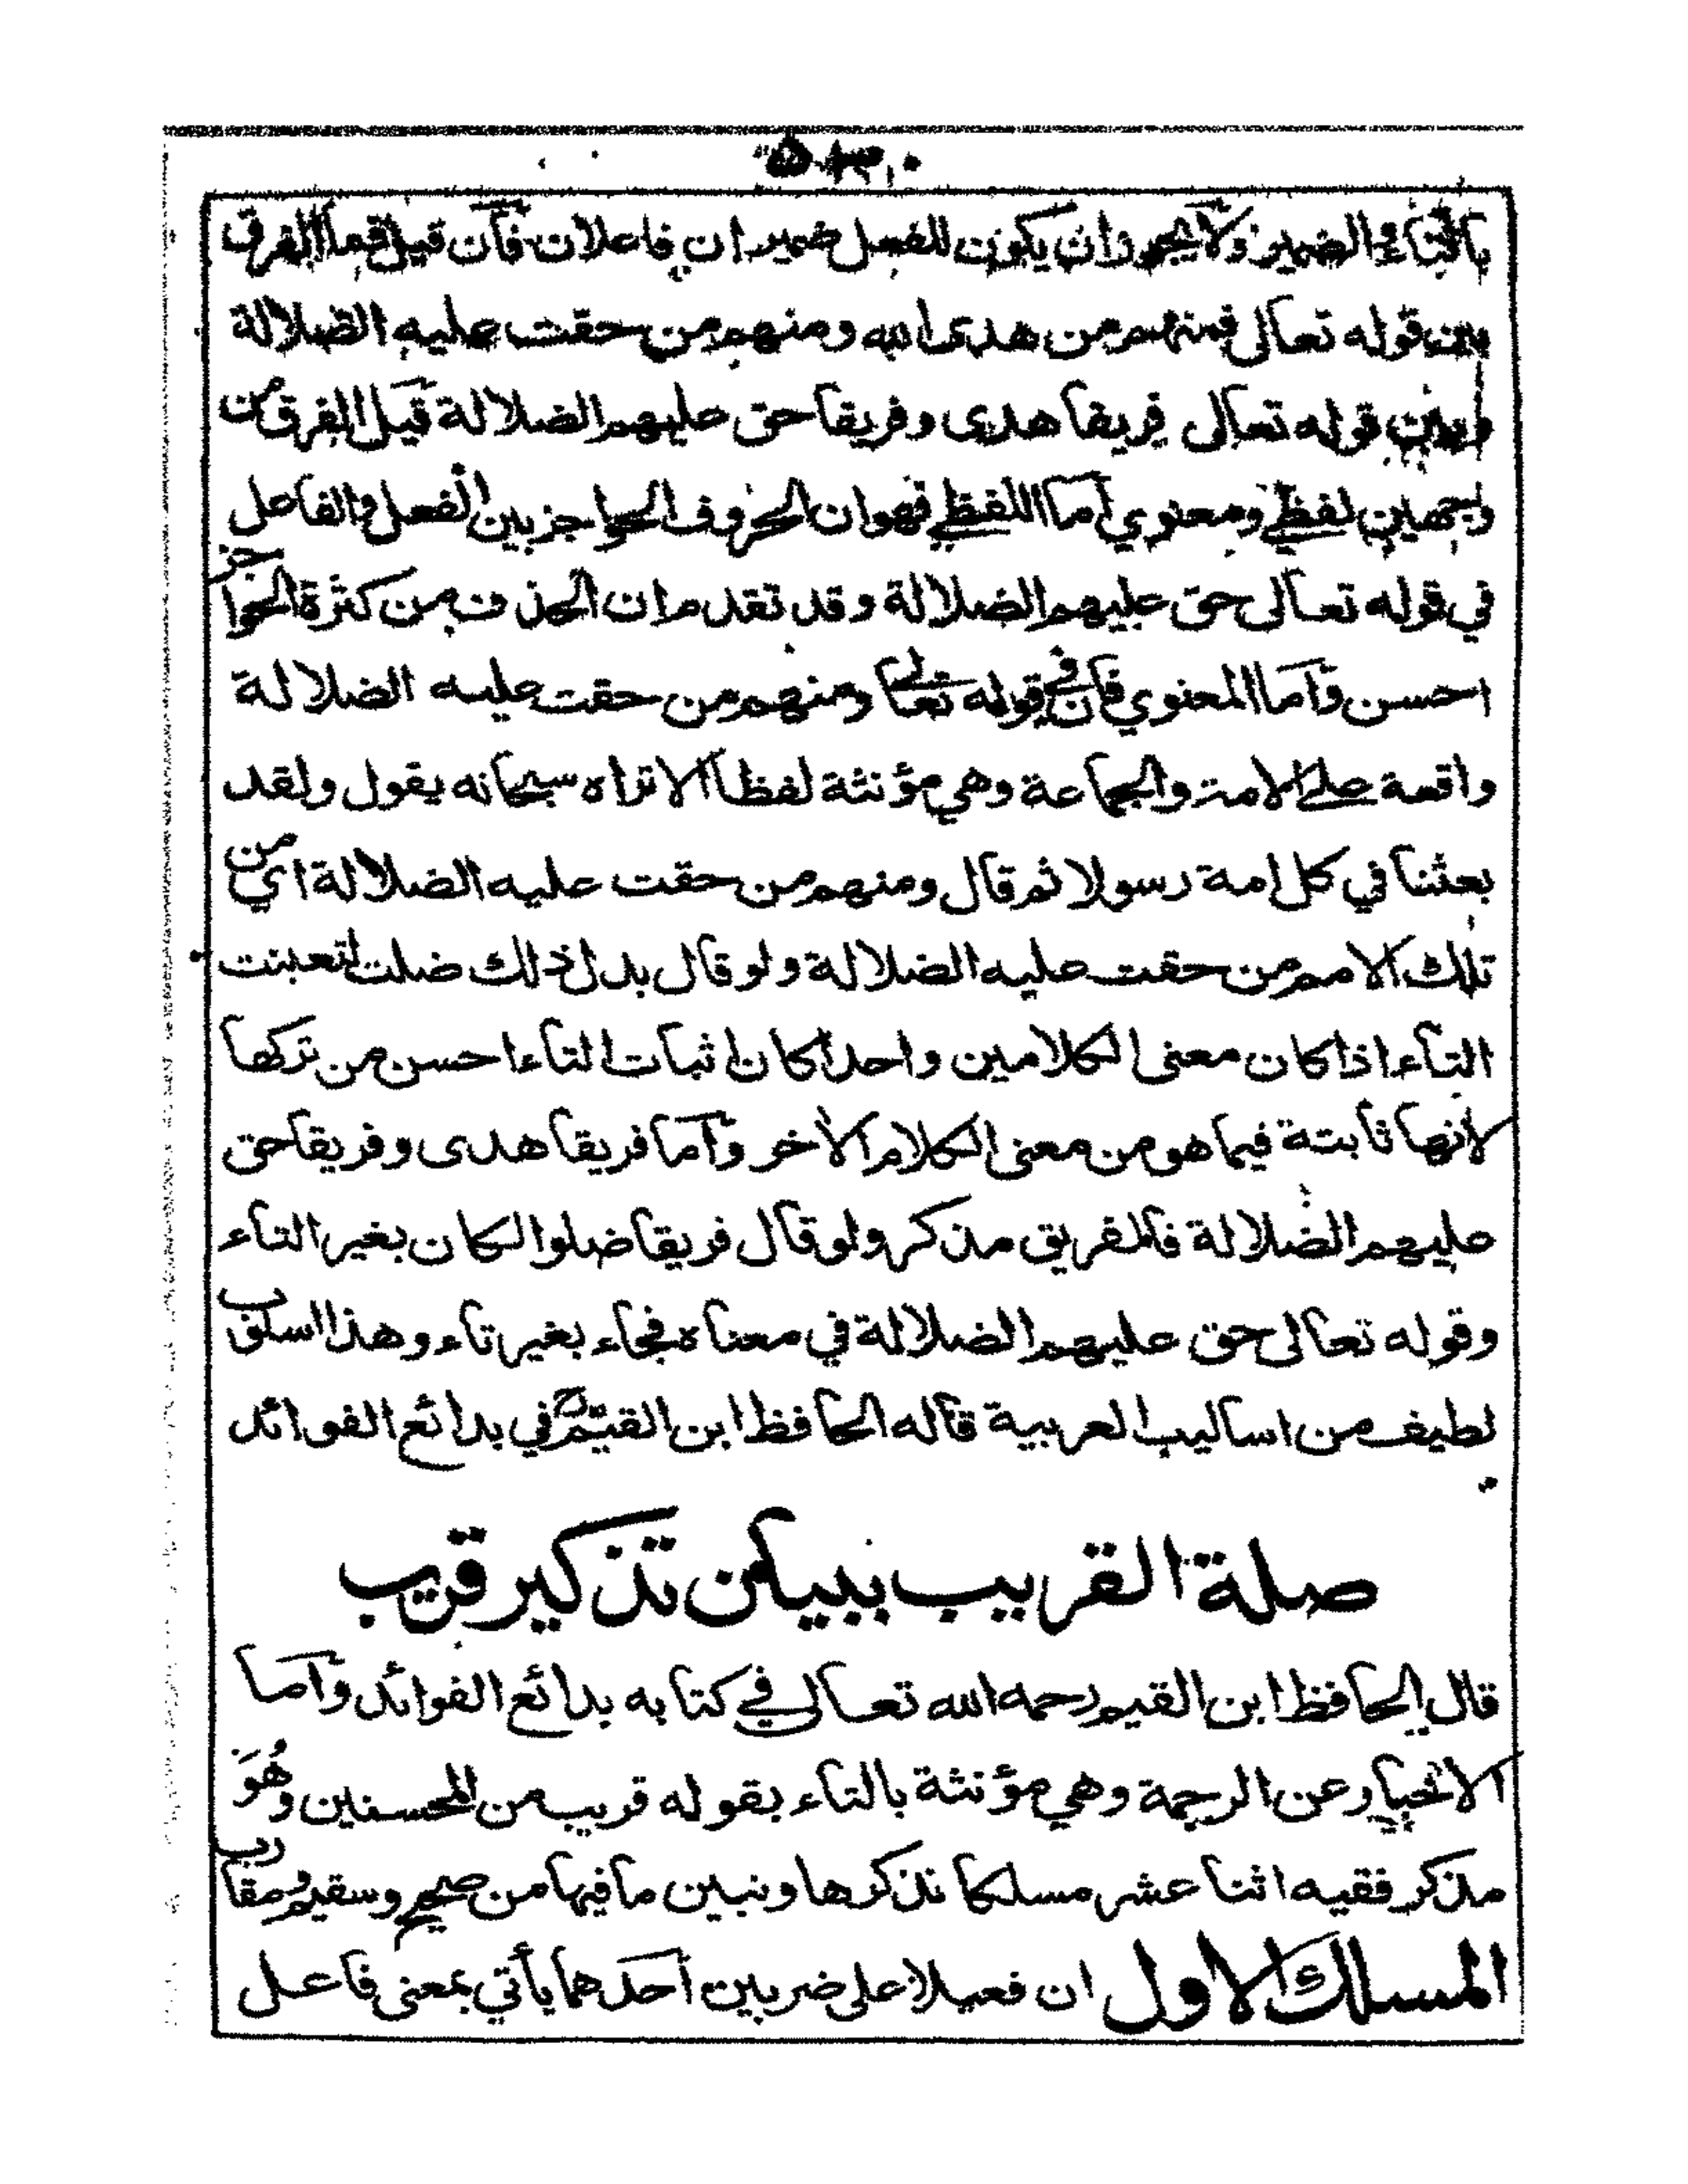 بالتاء والضمير ولا يجوز ان يكون للفعل ضميران فاعلان فان قيل فما الفرق
بين قوله تعالى فمنهم من هدى الله ومنهم من حقت عليه الضلالة
وبين قوله تعالى فريقا هدى وفريقا حق عليهم الضلالة قيل الفرق من
وجهين لفظي ومعنوي أما اللفظي فهو ان الحروف الحواجز بين الفعل والفاعل
في قوله تعالى حق عليهم الضلالة وقد تقدم ان الحذف من كثرة الحواجز
احسن وأما المعنوي فان في قوله تعالى ومنهم من حقت عليه الضلالة
واقعة على الامة والجماعة وهي مؤنثة لفظا الا تراه سبحانه يقول ولقد
بعثنا في كل امة رسولا ثم قال ومنهم من حقت عليه الضلالة اي من
تلك الامم من حقت عليه الضلالة ولو قال بدل ذلك ضلت لتعينت
التاء اذا كان معنى الكلامين واحدا كان اثبات التاء احسن من تركها
لانها ثابتة فيما هو من معنى الكلام الاخر وأما فريقا هدى وفريقا حق
عليهم الضلالة فالفريق مذكر ولو قال فريقا ضلوا لكان بغير التاء
وقوله تعالى حق عليهم الضلالة في معناه فجاء بغير تاء وهذا اسلوب
لطيف من اساليب العربية قاله الحافظ ابن القيم في بدائع الفوائد
صلة القريب ببيان تذكير قريب
قال الحافظ ابن القيم رحمه الله تعالى في كتابه بدائع الفوائد وأما
الاخبار عن الرحمة وهي مؤنثة بالتاء بقوله قريب من المحسنين وهُوَ
مذكر ففيه اثنا عشر مسلكا نذكرها ونبين ما فيها من صحيح وسقيم ومقارب
المسلك الاول ان فعيلا على ضربين أحدهما يأتي بمعنى فاعل